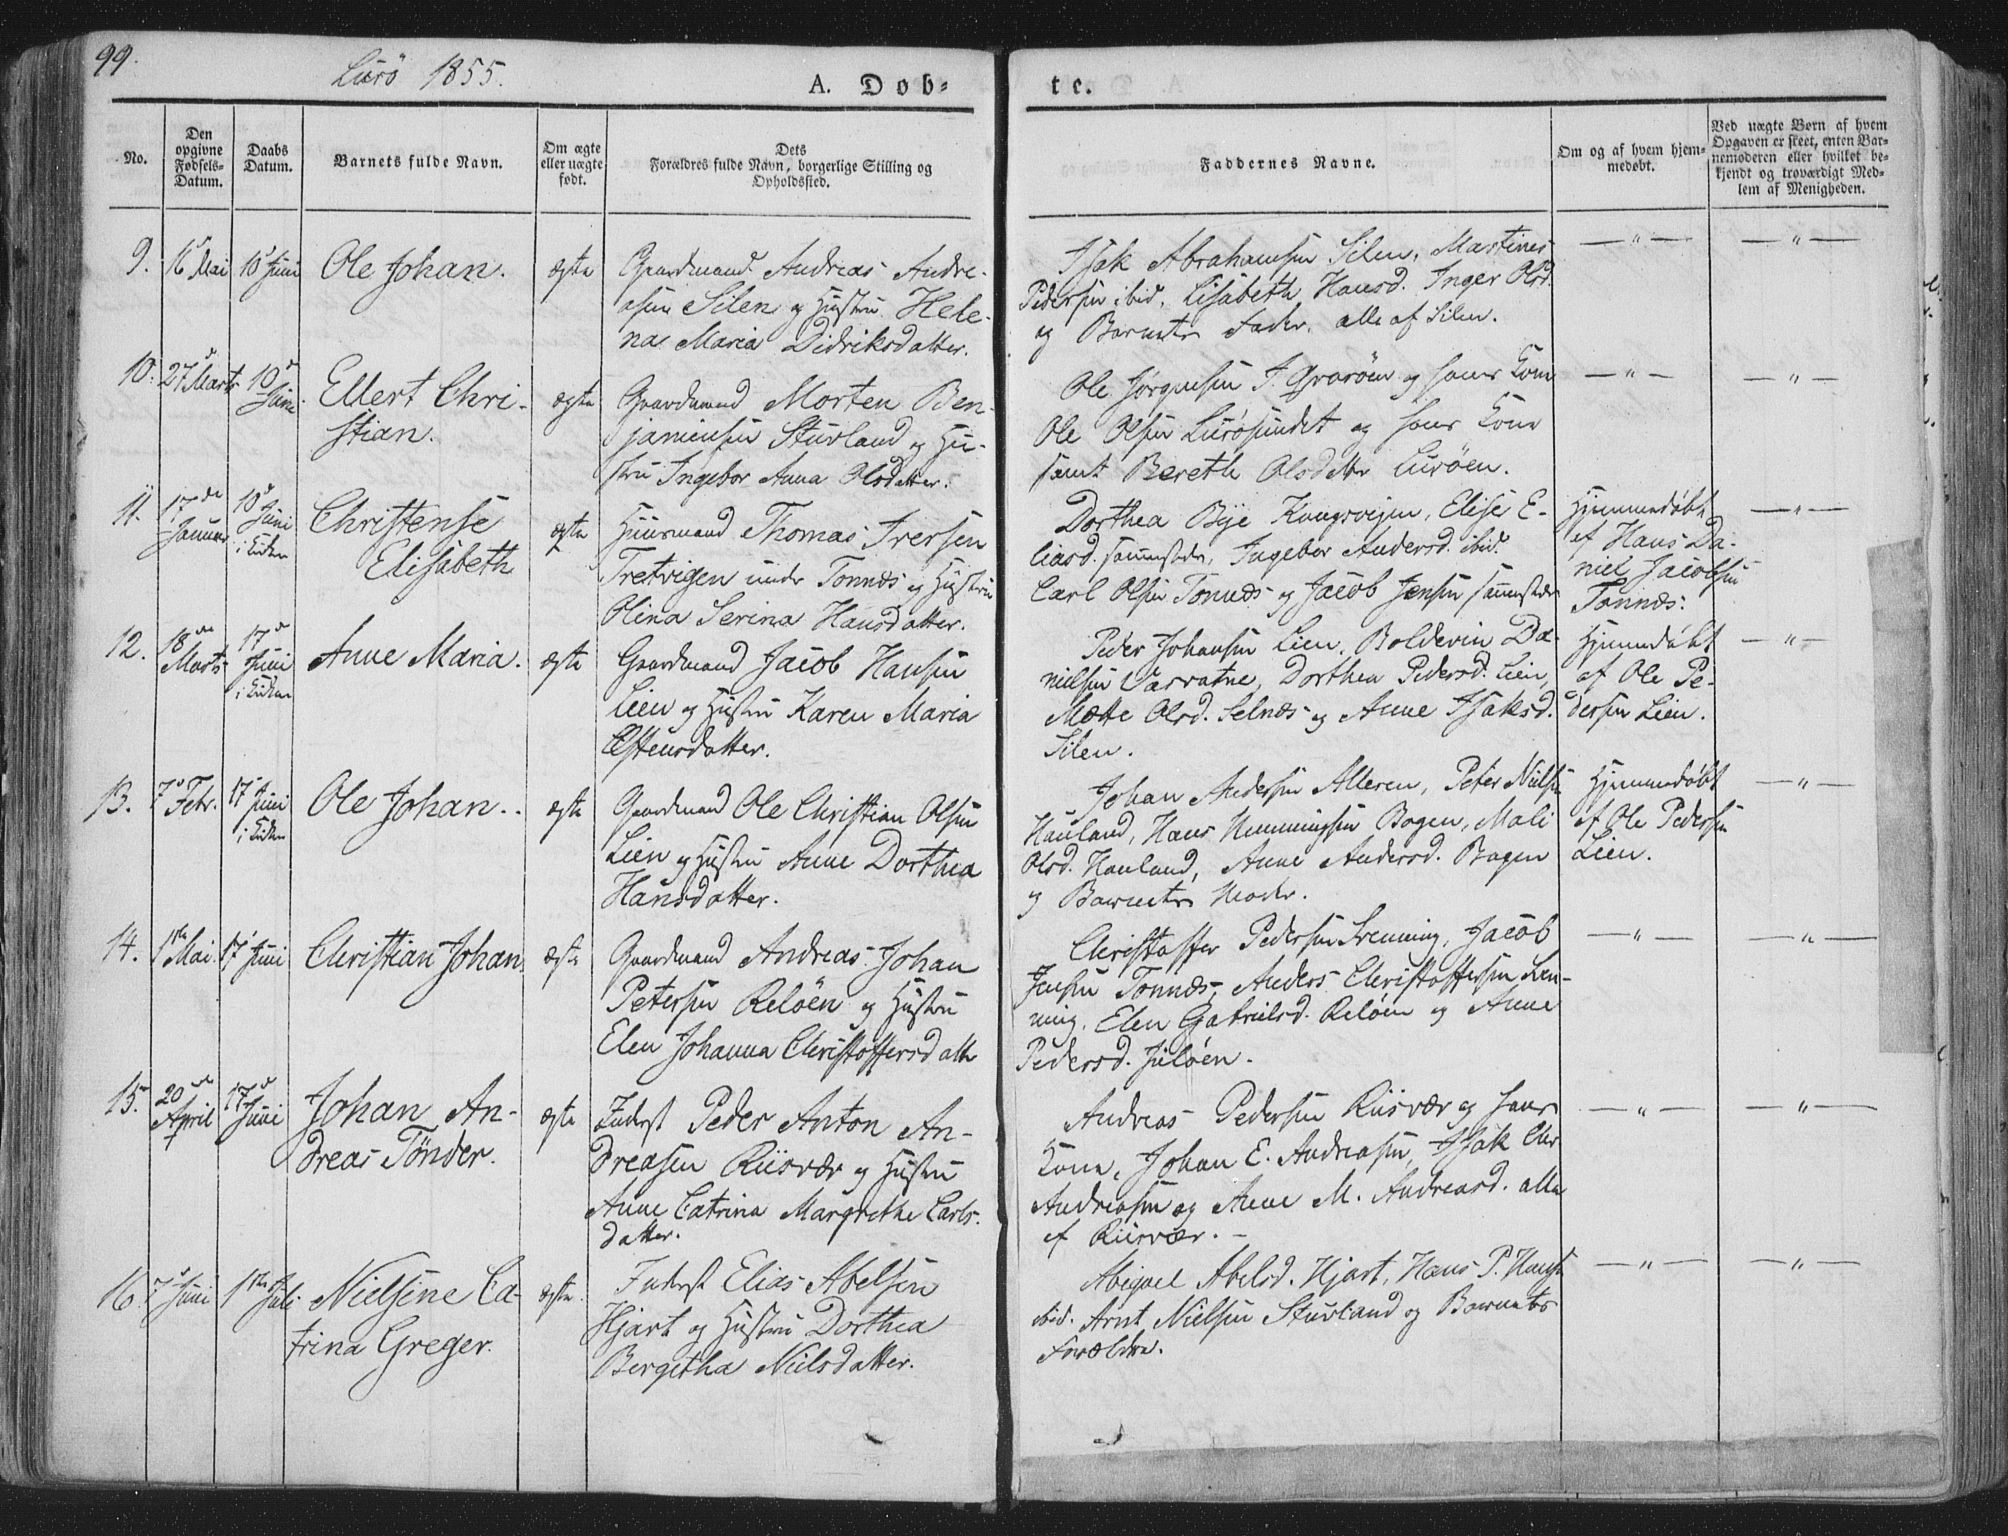 99.
Lurö 1855.
A. Døb-
te.
No.
Den opgivne Fødsels-Datum.
Daabs Datum.
Barnets fulde Navn.
Om ægte eller uægte født.
Dets Forældres fulde Navn, borgerlige Stilling og Opholdssted.
Faddernes Navne.
Om og af hvem hjemmedøbt.
Ved uægte Børn af hvem Opgaven er skeet, enten Barnemoderen eller hvilket bekjendt og troværdigt Medlem af Menigheden.
9. 16 Mai 10 Juni Ole Johan. ægte
Gaardmand Andreas Andre-
asen Silen og Hustru Hele-
na Maria Didriksdatter.
Isak Abrahamsen Silen, Martines
Pedersen ibid, Lisabeth Hansd. Inger Olsd.
og Barnets Fader, alle af Silen.
— " — — " —
10. 27 Marts 10 Juni
Ellert Chri-
stian.
ægte
Gaardmand Morten Ben-
jaminsen Sturland og Hu-
stru Ingebor Anna Olsdatter.
Ole Jørgensen Qvarøen og hans Kone
Ole Olsen Lurösundet og hans Kone
samt Bereth Olsdatter Luröen.
— " — — " —
11. 17de Januar 10 Juni i Kirken
Christense
Elisabeth
ægte
Huusmand Thomas Iversen
Tretvigen under Tonnes og Hustru
Olina Serina Hansdatter.
Dorthea Bye Kongsvigen, Elise E-
liasd. sammesteds, Ingebor Andersd. ibid.
Carl Olsen Tonnes og Jacob Jensen sammesteds
Hjemmedøbt
af Hans Da-
niel Jacobsen
Tonnes.
— " —
12. 18de Marts 17 Juni i Kirken
Anne Maria.
ægte
Gaardmand Jacob Hansen
Lien og Hustru Karen Maria
Estensdatter.
Peder Johansen Lien, Boldevin Da-
nielsen Sarvatne, Dorthea Pedersd. Lien,
Mette Olsd. Selnæs og Anne Isaksd.
Silen.
Hjemmedøbt
af Ole Pe-
dersen Lien.
— " —
13. 7 Febr. 17 Juni i Kirken
Ole Johan.
ægte
Gaardmand Ole Christian Olsen
Lien og Hustru Anne Dorthea
Hansdatter.
Johan Andersen Alteren, Peter Nielsen
Hauland, Hans Hemmingsen Bogen, Mali
Olsd. Hauland, Anne Andersd. Bogen
og Barnets Moder.
Hjemmedøbt
af Ole Pedersen
Lien.
— " —
14. 1ste Mai 17 Juni
Christian Johan
ægte
Gaardmand Andreas Johan
Petersen Reløen og Hustru
Elen Johanna Christoffersdatter
Christoffer Pedersen Svenning, Jacob
Jensen Tonnes, Anders Christoffersen Sven-
ning, Elen Gabrielsd. Reløen og Anne
Pedersd. Juløen.
— " — — " —
15. 20de April 17 Juni
Johan An-
dreas Tönder.
ægte
Inderst Peder Anton An-
dreasen Riisvær og Hustru
Anne Catrina Margrethe Carls-
datter.
Andreas Pedersen Riisvær og hans
Kone, Johan E. Andreasen, Isak Chr.
Andreasen og Anne M. Andreasd. alle
af Riisvær.
— " — — " —
16. 7 Juni 1ste Juli
Nielsine Ca-
trina Greger.
ægte
Inderst Elias Abelsen
Hjart og Hustru Dorthea
Bergitha Nielsdatter.
Abigael Abelsd. Hjart, Hans P. Hansen
ibid. Arnt Nielsen Sturland og Barnets
Forældre.
— " — — " —